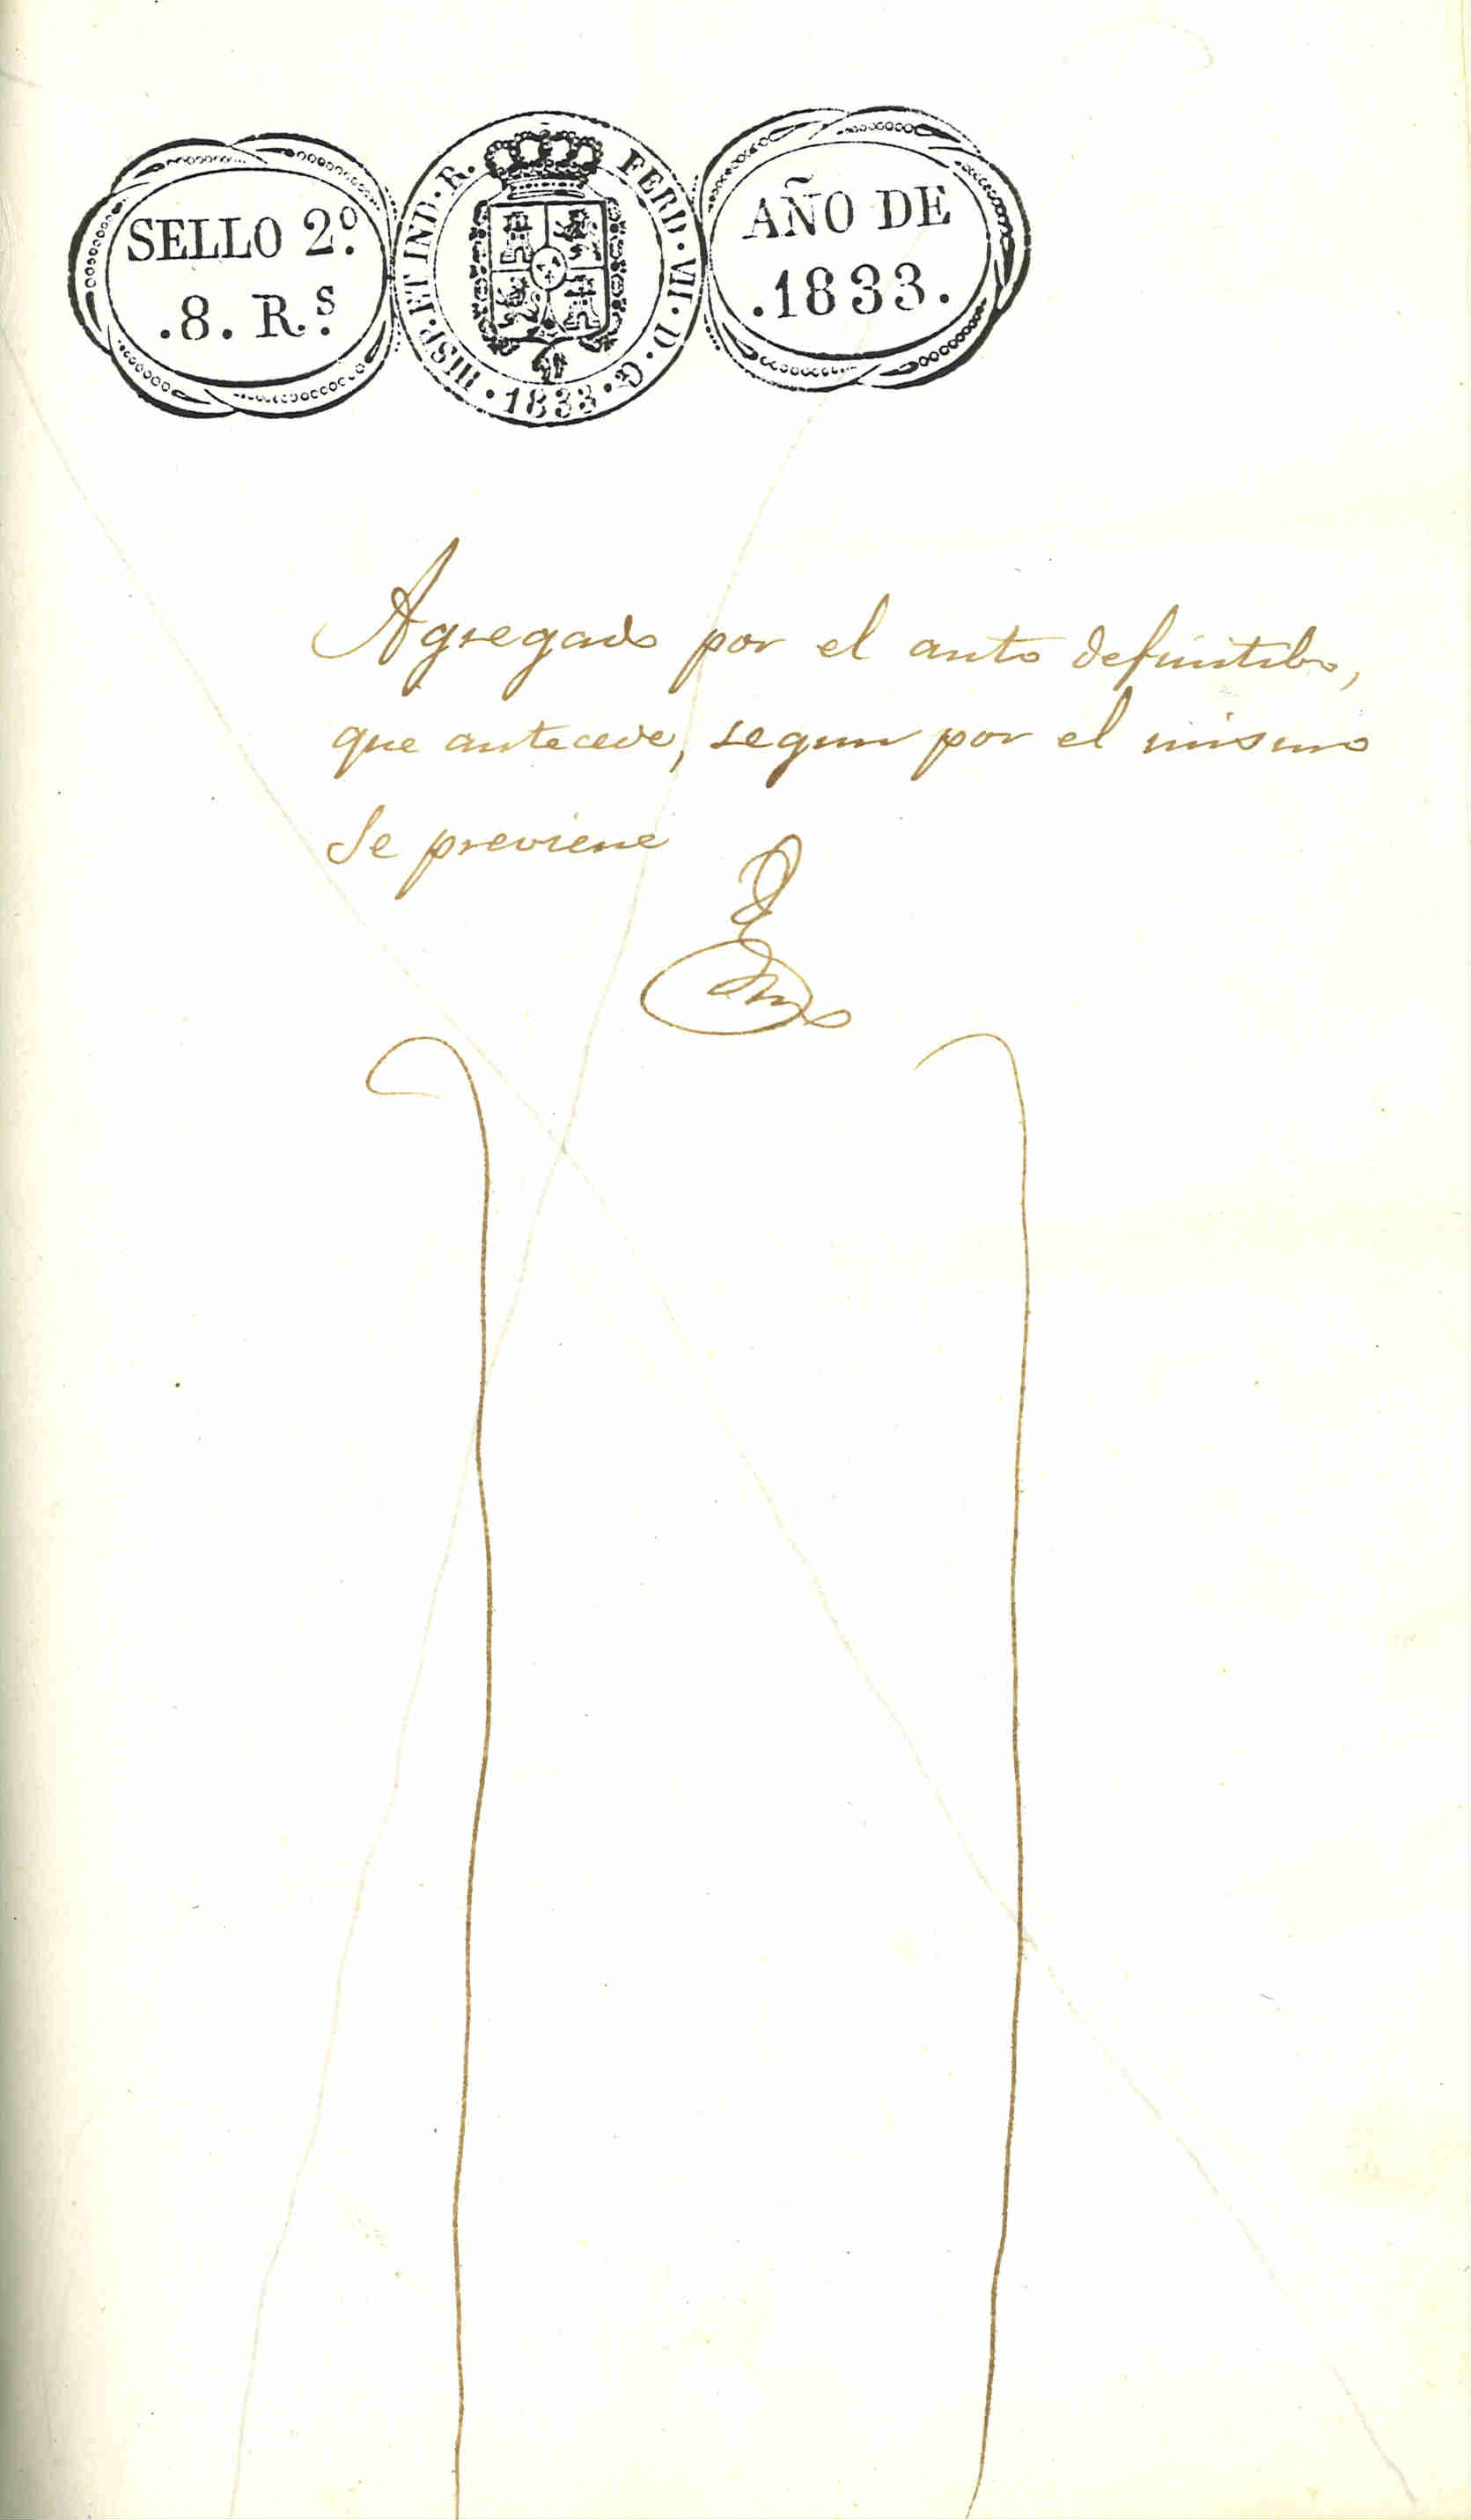 SELLO 2º.
.8. R.s
HISP. ET IND. R. FERD. VII. D. G. 1833
AÑO DE
.1833.
Agregado por el auto definitibo,
que antecede, segun por el mismo
se previene